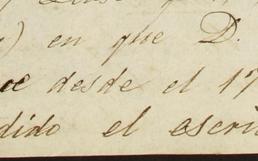 ) en que D.
desde el 17
dido el escri